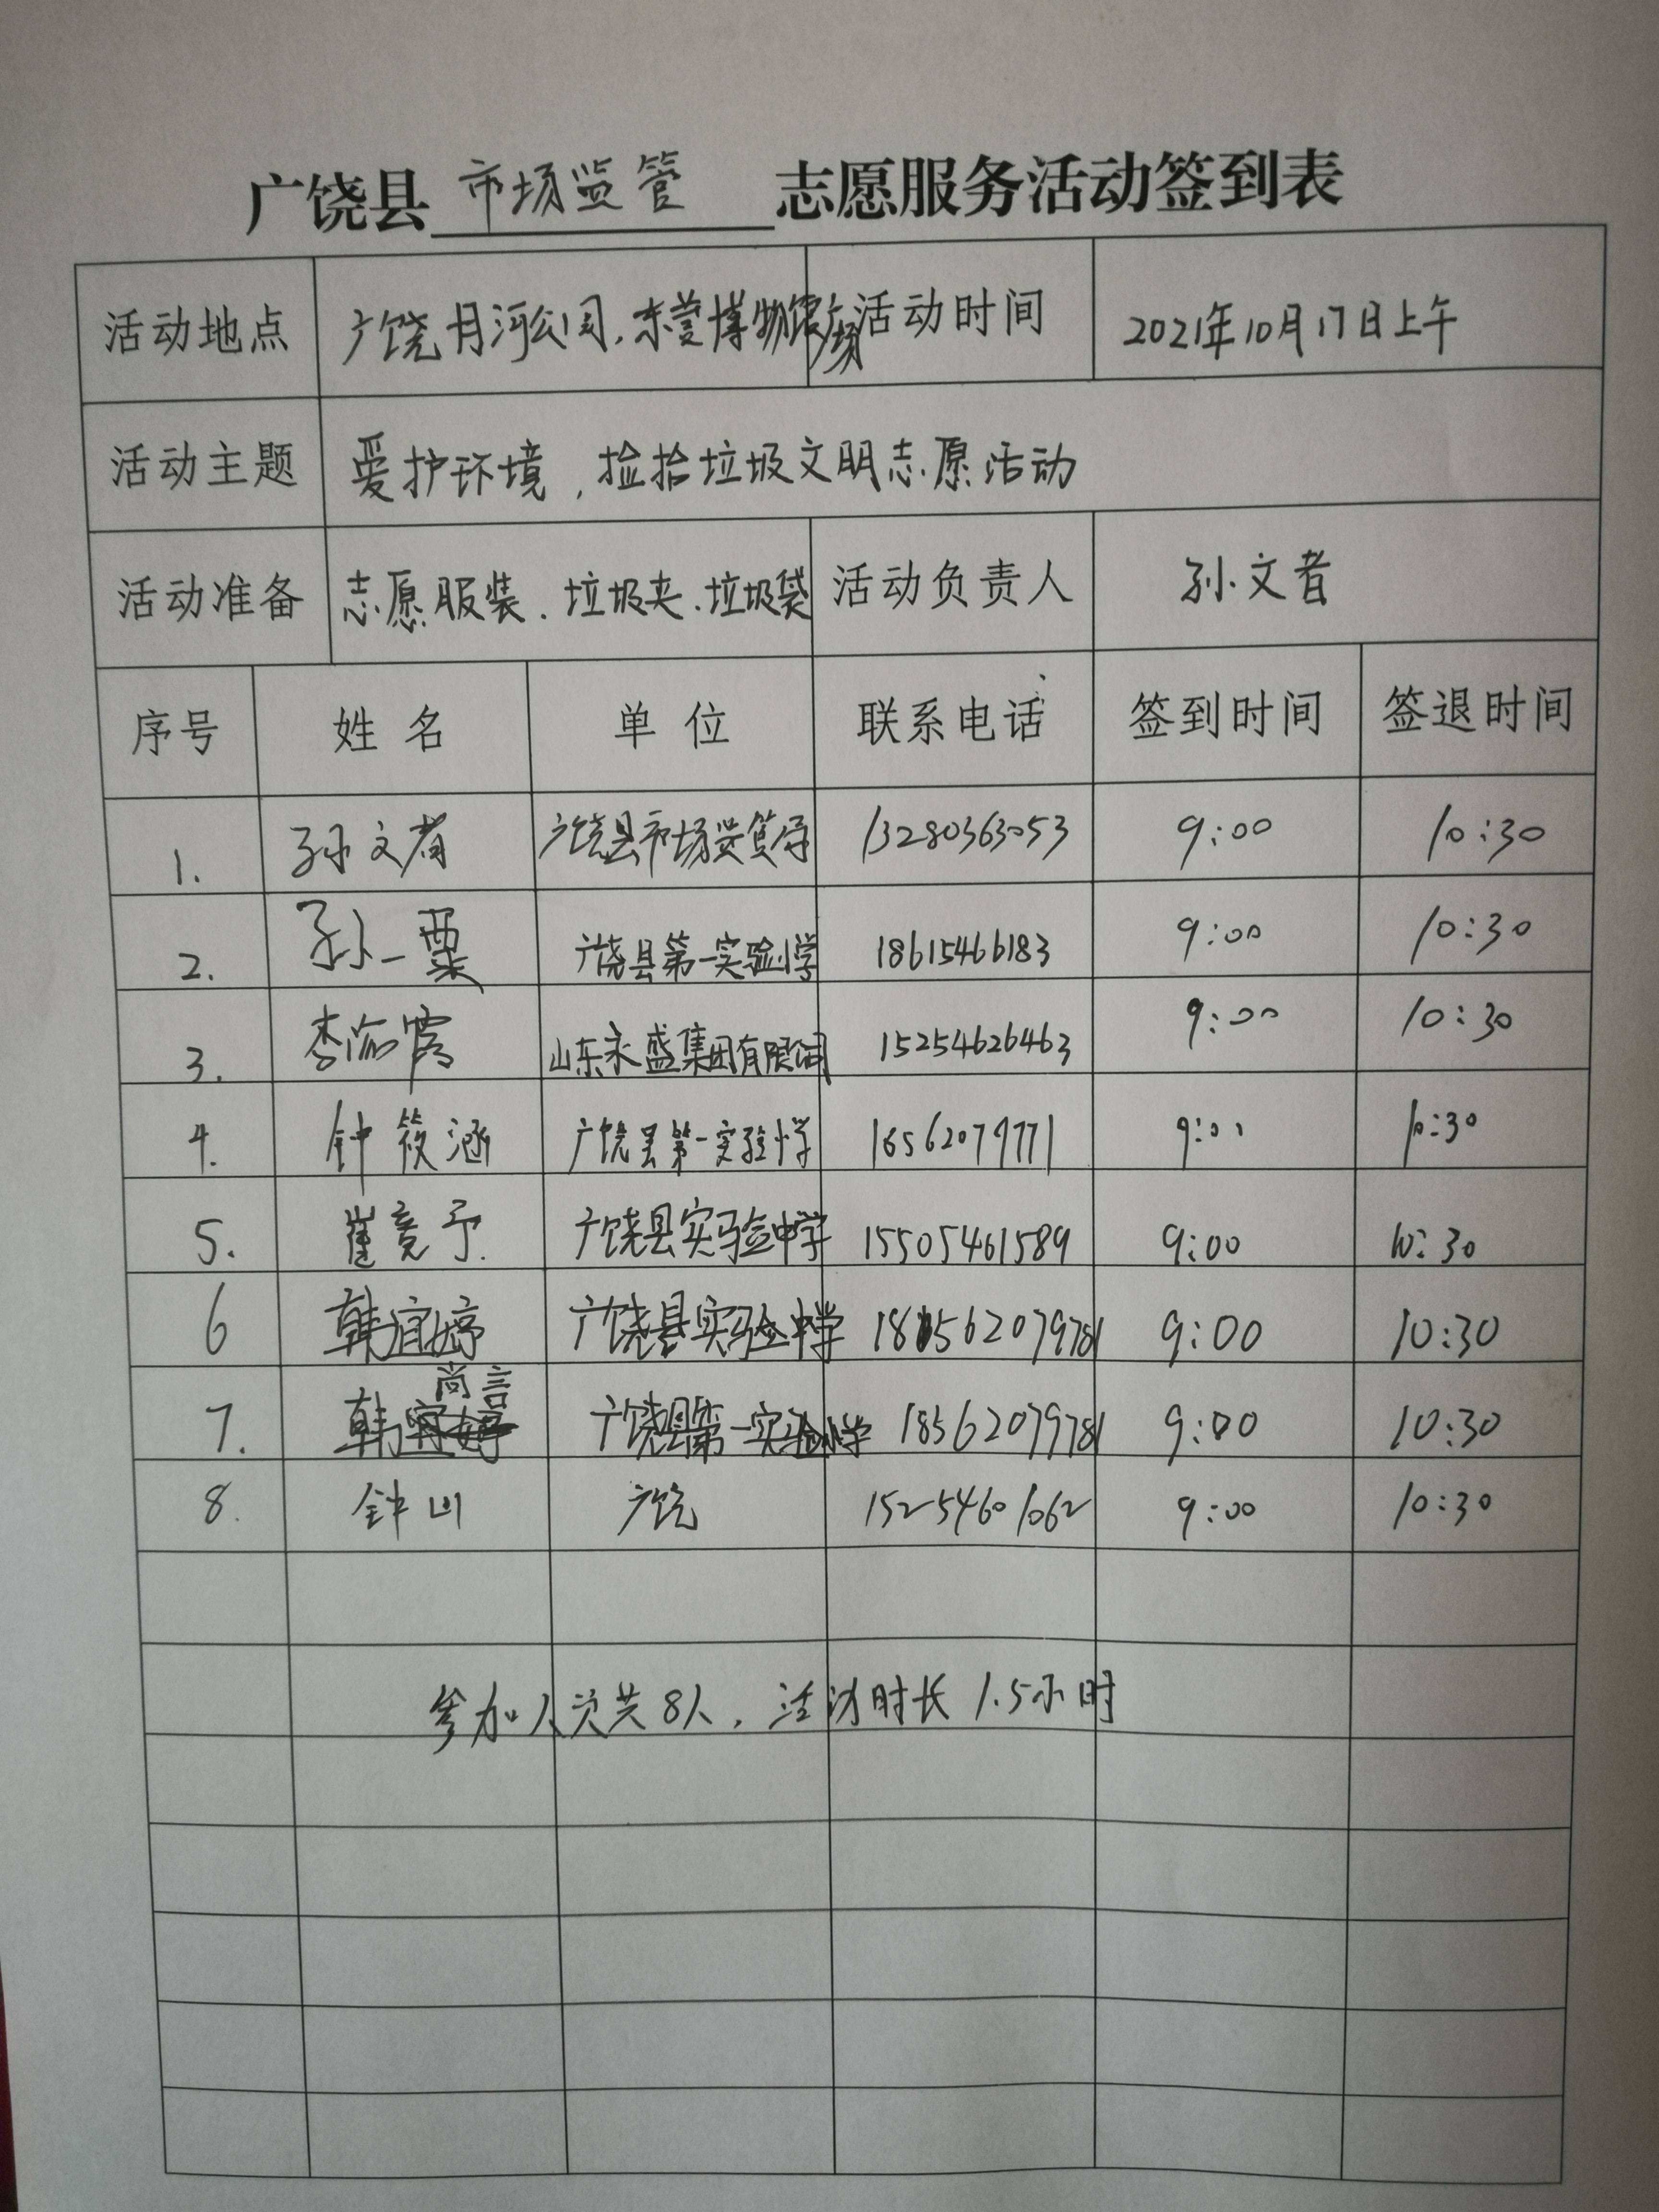 广饶县 市场监管 志愿服务活动签到表
活动地点 广饶月河公园、东营博物馆广场 活动时间 2021年10月17日上午
活动主题 爱护环境,捡拾垃圾文明志愿活动
活动准备 志愿服装、垃圾夹、垃圾袋 活动负责人 孙文
序号 姓名 单位 联系电话 签到时间 签退时间
1. 孙文 广饶县市场监管局 13280363053 9:00 10:30
2. 孙一粟 广饶县第一实验小学 18615466183 9:00 10:30
3. 李 霞 山东永盛集团有限公司 15254626463 9:00 10:30
4. 钟筱涵 广饶县第一实验小学 18562079771 9:00 10:30
5. 崔竟予 广饶县实验中学 15505461589 9:00 10:30
6 韩宜婷 广饶县实验中学 18562079781 9:00 10:30
7. 韩尚言 广饶县第一实验小学 18562079781 9:00 10:30
8. 钟山 广饶 15254601062 9:00 10:30
参加人员共8人,活动时长1.5小时